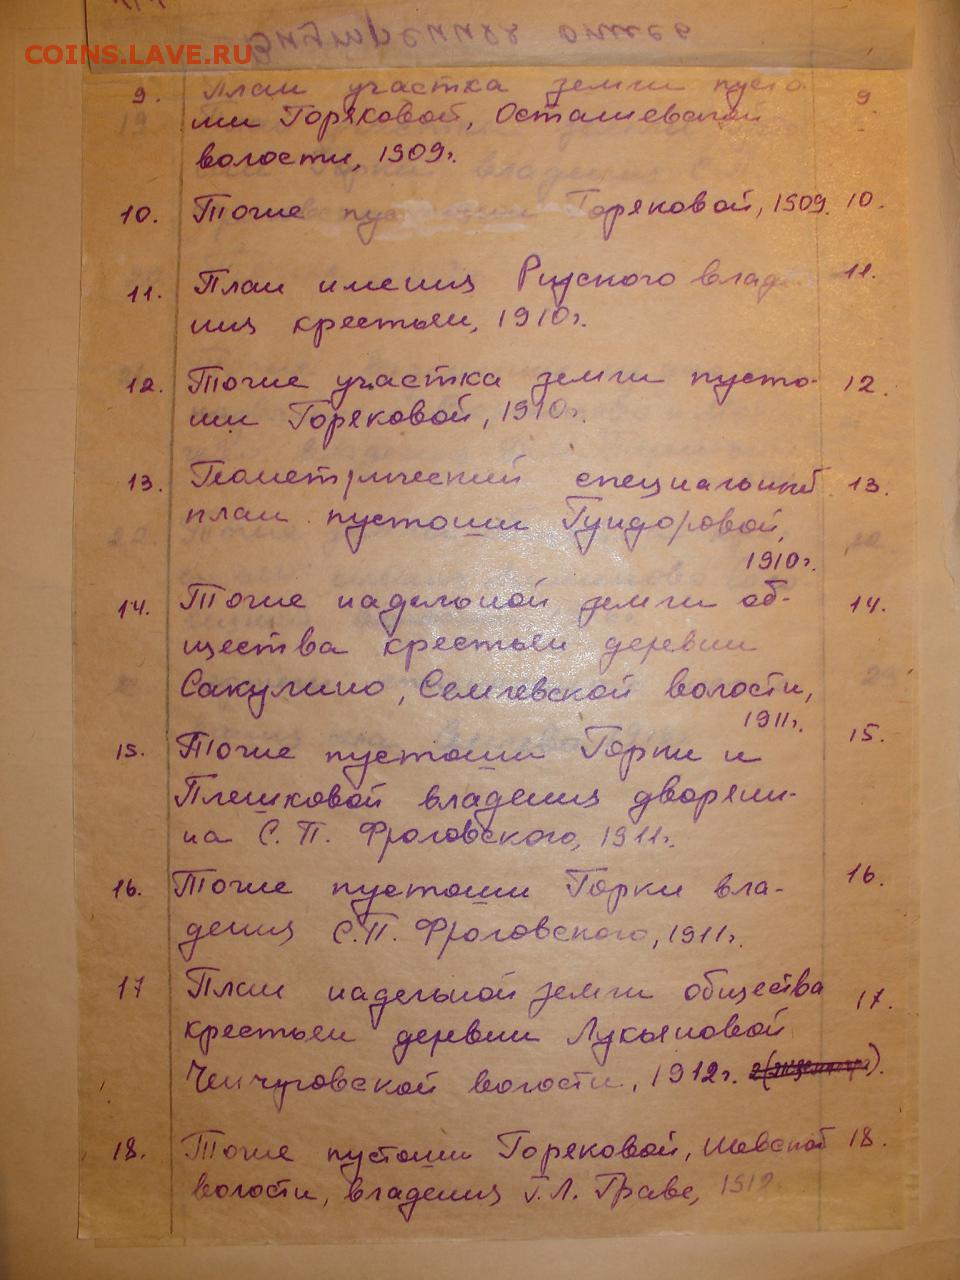 COINS.LAVE.RU
Внутренняя опись
9. План участка земли пусто- 9
ши Горяковой, Осташевской
волости, 1909г.
10. То же пустоши Горяковой, 1909. 10.
11. План имения Рузского владе 11.
ния крестьян, 1910г.
12. То же участка земли пусто- 12.
ши Горяковой, 1910г.
13. Геометрический специальный 13.
план пустоши Гундоровой,
1910г.
14. То же надельной земли об- 14.
щества крестьян деревни
Сакулино, Семлевской волости,
1911г.
15. То же пустоши Горки и 15.
Плешковой владения дворяни-
на С. П. Фроловского, 1911г.
16. То же пустоши Горки вла- 16.
дения С.П. Фроловского, 1911г.
17 План надельной земли общества 17.
крестьян деревни Лукьяновой
волости, 1912г.
18. То же пустоши Горяковой, 18.
волости, владения Л. Граве, 1912